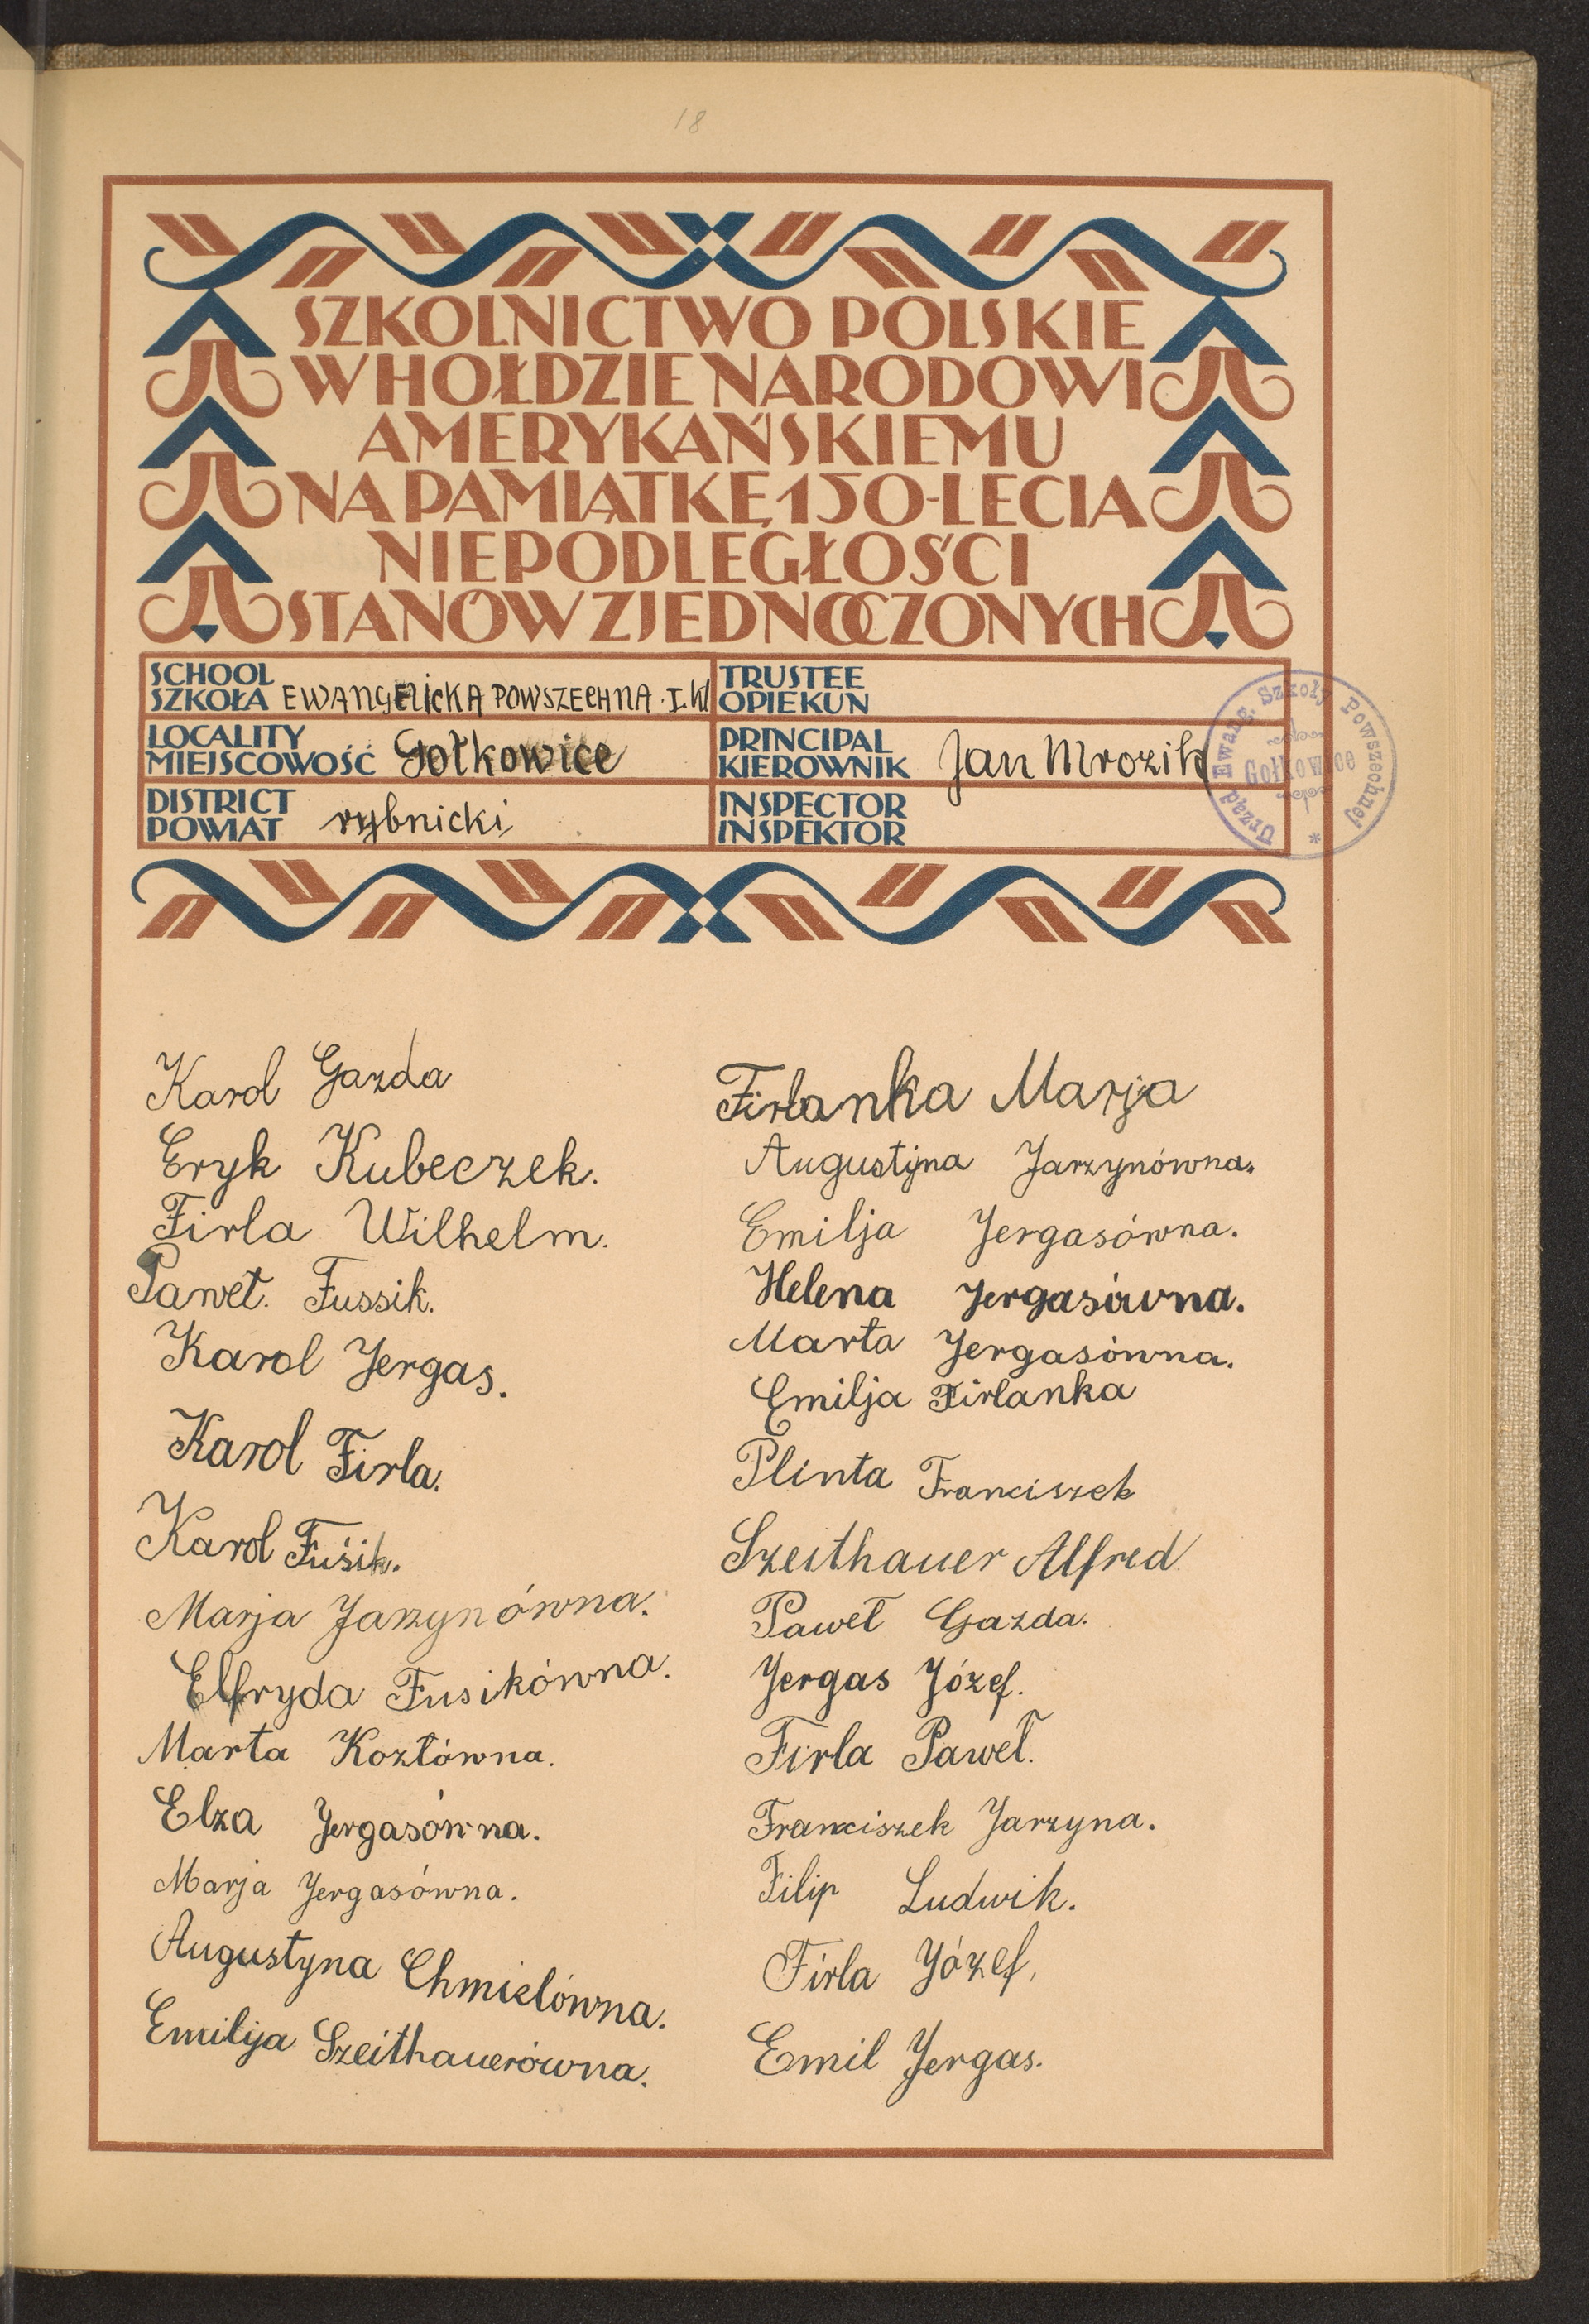 18
SZKOLNICTWO POLSKIE
W HOŁDZIE NARODOWI
AMERYKAŃSKIEMU
NA PAMIĄTKĘ 150-LECIA
NIEPODLEGŁOŚCI
STANÓW ZJEDNOCZONYCH
SCHOOL
SZKOŁA EWANGELICKA POWSZECHNA I. kl
TRUSTEE
OPIEKUN
LOCALITY
MIEJSCOWOŚĆ Gołkowice
PRINCIPAL
KIEROWNIK Jan Mrozik
DISTRICT
POWIAT rybnicki
INSPECTOR
INSPEKTOR
Urząd Ewang. Szkoły Powszechnej
Gołkowice
*
Karol Gazda
Eryk Kubeczek.
Firla Wilhelm.
Paweł. Fussik.
Karol Jergas.
Karol Firla.
Karol Fusik.
Marja Jarzynówna.
Elfryda Fusikówna.
Marta Kozłówna.
Elza Jergasówna.
Marja Jergasówna.
Augustyna Chmielówna.
Emilija Szeithauerówna.
Firlanka Marja
Augustyna Jarzynówna.
Emilja Jergasówna.
Helena Jergasówna.
Marta Jergasówna.
Emilja Firlanka
Plinta Franciszek
Szeithauer Alfred
Paweł Gazda.
Jergas Józef.
Firla Paweł.
Franciszek Jarzyna.
Filip Ludwik.
Firla Józef,
Emil Jergas.